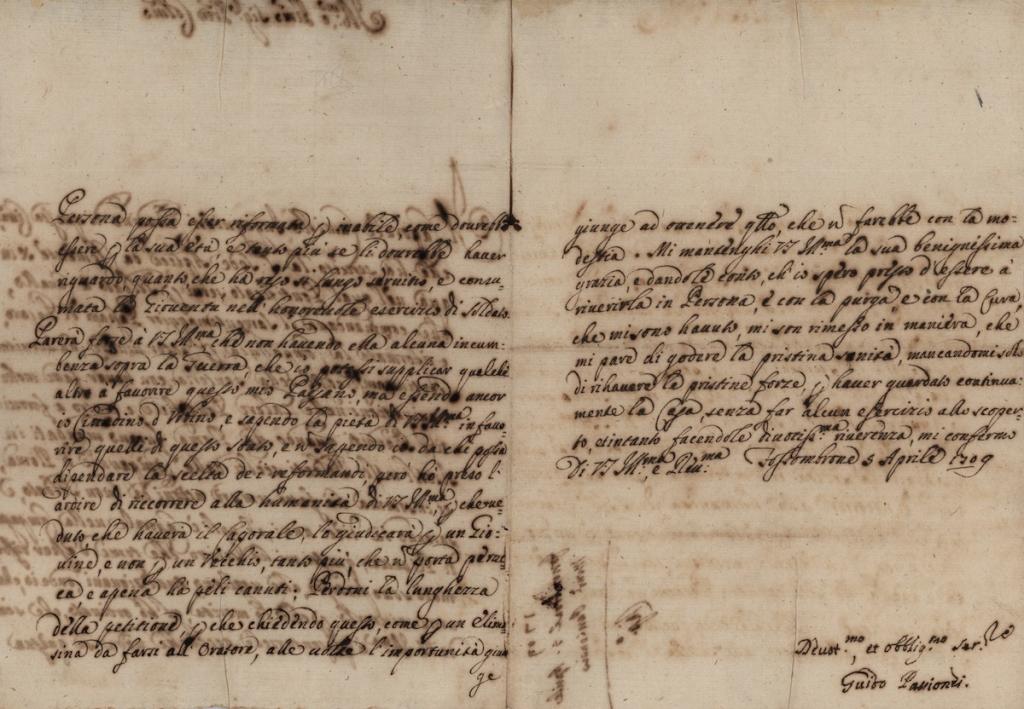 Persona possa esser riformato ꝑ inabile come dourebbe
essere ꝑ la sua età, e tanto più se li dourebbe hauer
riguardo, quanto che ha reso sì lungo seruitio, e consu-
mata la Giouentù nell'honoreuole esercizio di Soldato.
Parerà forse à V. S. Illma che non hauendo ella alcuna incum-
benza sopra la Guerra, che io potessi supplicar qualche
altro à fauorire questo mio Paesano, ma essendo ancor
io Cittadino d'Urbino, e sapendo la pietà di V. S. Illma in fauo-
rire quelli di questo stato, e n̄ sapendo io da chi possa
dipendere la scelta de i reformandi, però hò preso l'
ardire di riccorrere alla humanità di V. S. Illma, ꝑche ue-
duto, che hauerà il lo giudicarà ꝑ un Gio-
uine, e non ꝑ un Vecchio, tanto più, che n̄ porta perruc-
ca, e apena hà peli canuti. Perdoni la lunghezza
della petitione, ꝑche chiedendo questo, come ꝑ un elimo-
sina da farsi all'Oratore, alle uolte l'importunità giun
ge
giunge ad ottenere qllo, che n̄ farebbe con la mo-
destia. Mi mantenghi V. S. Illma la sua benignissima
grazia, e dandole conto, ch'io spero presto d'essere à
riuerirla in Persona, è con la purga, e con la Cura,
che mi sono hauuto, mi son rimesso in maniera, che
mi pare di godere la pristina sanità, mancandomi solo
di rihauere le pristine forze, ꝑ hauer guardato continua-
mente la Casa, senza far alcun esercizio allo scoper-
to, e intanto facendole diuotissma riuerenza, mi confermo
Di V. S. Illma, e Reuma Fossombrone 5 Aprile 1709
Deuotmo, et obbligmo Serre
Guido Passionei.